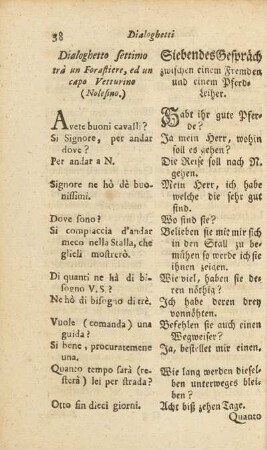 38 Dialoghetti
Dialoghetto settimo
trà un Forastiere, ed un
capo Vetturino
(Nolesino.)
Avete buoni cavalli?
Si Signore, per andar
dove?
Per andar a N.
Signore ne hò dè buo-
nissimi.
Dove sono?
Si compiaccia d'andar
meco nella Stalla, che
glieli mostrerò.
Di quanti ne hà di bi-
sogno V.S.?
Ne hò di bisogno di trè.
Vuole (comanda) una
guida?
Si bene, procuratemene
una.
Quanto tempo sarà (re-
sterà) lei per strada?
Otto sin dieci giorni.
Siebendes Gespräch
zwischen einem Fremden
und einem Pferd-
Leiher.
Habt ihr gute Pfer-
de?
Ja mein Herr, wohin
soll es gehen?
Die Reise soll nach N.
gehen.
Mein Herr, ich habe
welche die sehr gut
sind.
Wo sind sie?
Belieben sie mit mir sich
in den Stall zu be-
mühen so werde ich sie
ihnen zeigen.
Wie viel, haben sie de-
ren nöthig?
Ich habe deren drey
vonnöhten.
Befehlen sie auch einen
Wegweiser?
Ja, bestellet mir einen.
Wie lang werden diesel-
ben unterweges blei-
ben?
Acht biß zehen Tage.
Quanto